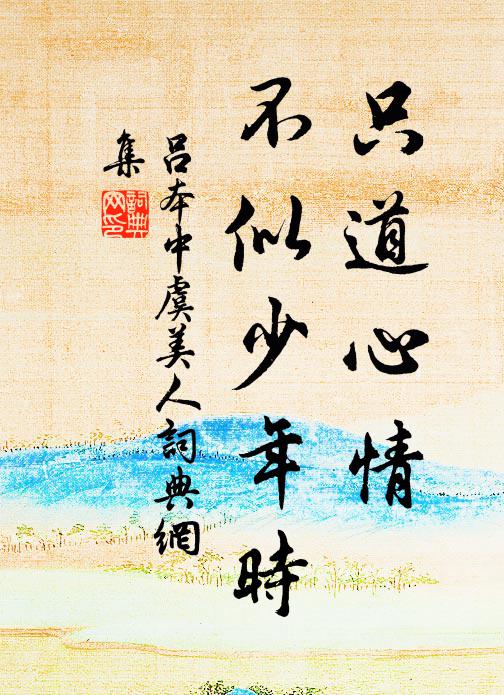 只道心情
不似少年時
呂本中虞美人詞典網
集
詞典
网印